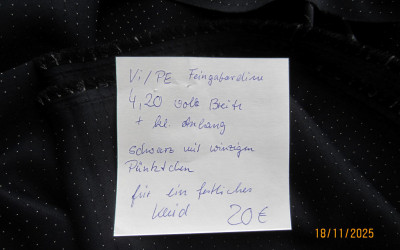 Vi/PE Feingabardine
4,20 volle Breite
+ kl. Anhang
schwarz mit winzigen
Pünktchen
für ein festliches
Kleid 20 €
18/11/2025